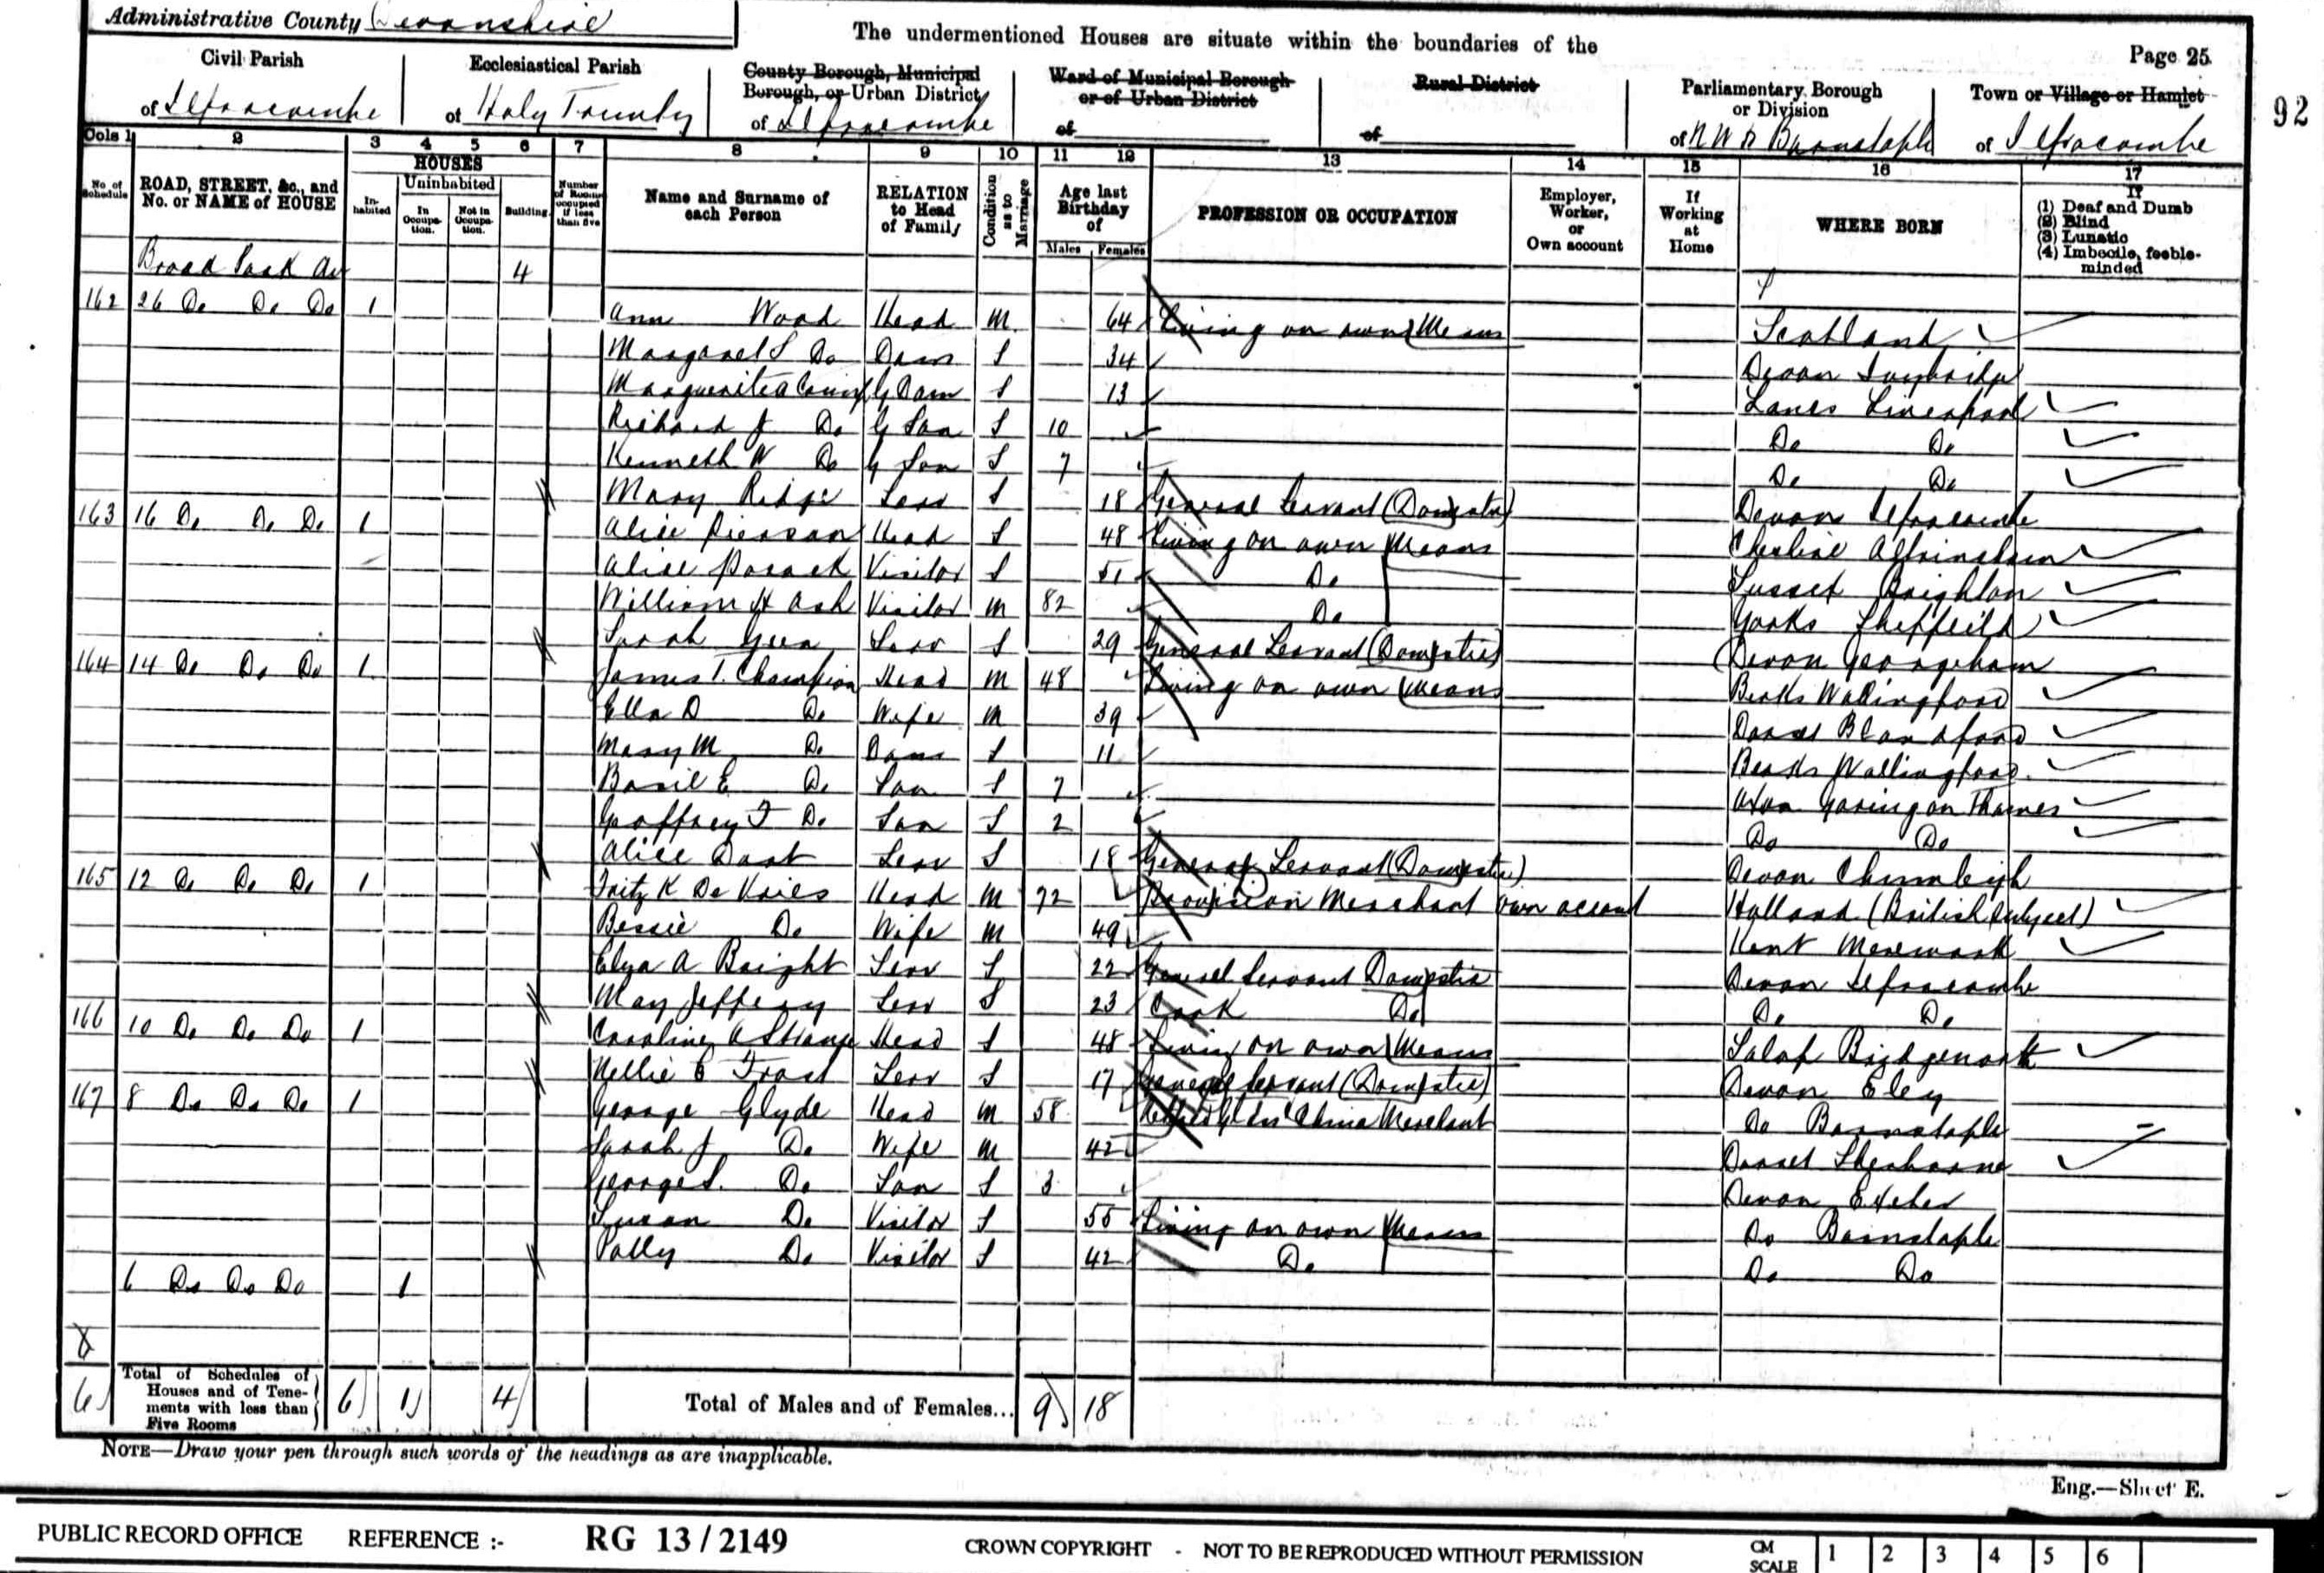 Administrative County Devonshire
The undermentioned Houses are situate within the boundaries of the
Page 25
92
Civil Parish
of Ilfracombe
Ecclesiastical Parish
of Holy Trinity
County Borough, Municipal Borough, or Urban District
of Ilfracombe
Ward of Municipal Borough or of Urban District
of
Rural District
of
Parliamentary Borough or Division
of N W D Barnstaple
Town or Village or Hamlet
of Ilfracombe
Cols 1 2 3 4 5 6 7 8 9 10 11 12 13 14 15 16 17
No. of Schedule
ROAD, STREET, &c., and No. or NAME of HOUSE
HOUSES
In-habited
Uninhabited
In Occupa-tion.
Not in Occupa-tion.
Building
Number of Rooms occupied if less than five
Name and Surname of each Person
RELATION to Head of Family
Condition as to Marriage
Age last Birthday of
Males Females
PROFESSION OR OCCUPATION
Employer, Worker, or Own account
If Working at Home
WHERE BORN
If
(1) Deaf and Dumb
(2) Blind
(3) Lunatic
(4) Imbecile, feeble-minded
Broad Park Av 4
162 26 Do Do Do 1 Ann Wood Head M 64 Living on own Means Scotland
Margaret S Do Daur S 34 Devon
Marguerite G Daur S 13 Lancs Liverpool
Richard J Do G Son S 10 Do Do
Kenneth W Do G Son S 7 Do Do
Mary Ridge Serv S 18 General Servant (Domestic) Devon Ilfracombe
163 16 Do Do Do 1 Alice Pierson Head S 48 Living on own Means Cheshire Altrincham
Alice Visitor S 51 Do Sussex Brighton
William H Ash Visitor M 82 Do Yorks Sheffeild
Sarah Serv S 29 General Servant (Domestic) Devon Georgeham
164 14 Do Do Do 1 James T. Champion Head M 48 Living on own Means Berks Wallingford
Ella D Do Wife M 39 Dorset Blandford
Mary M Do Daur S 11 Berks Wallingford
Basil E Do Son S 7 Oxon Goring on Thames
Geoffrey F Do Son S 2 Do Do
Alice Dart Serv S 18 General Servant (Domestic) Devon Chumleigh
165 12 Do Do Do 1 Fritz K De Vries Head M 72 Provision Merchant Own account Holland (British Subject)
Bessie Do Wife M 49 Kent
Elza A Bright Serv S 22 General Servant Domestic Devon Ilfracombe
May Jeffery Serv S 23 Cook Do Do Do
166 10 Do Do Do 1 Caroline A Strange Head S 48 Living on own Means Salop Bridgenorth
Nellie E Frost Serv S 17 General Servant (Domestic) Devon
167 8 Do Do Do 1 George Glyde Head M 58 Retired China Merchant Do Barnstaple
Sarah J Do Wife M 42 Dorset Sherborne
George S. Do Son S 3 Devon Exeter
Susan Do Visitor S 55 Living on own Means Do Barnstaple
Polly Do Visitor S 42 Do Do Do
6 Do Do Do 1
6 Total of Schedules of Houses and of Tene-ments with less than Five Rooms 6 1 4 Total of Males and of Females... 9 18
NOTE—Draw your pen through such words of the headings as are inapplicable.
Eng.—Sheet E.
PUBLIC RECORD OFFICE REFERENCE :- RG 13 / 2149 CROWN COPYRIGHT - NOT TO BE REPRODUCED WITHOUT PERMISSION CM SCALE 1 2 3 4 5 6